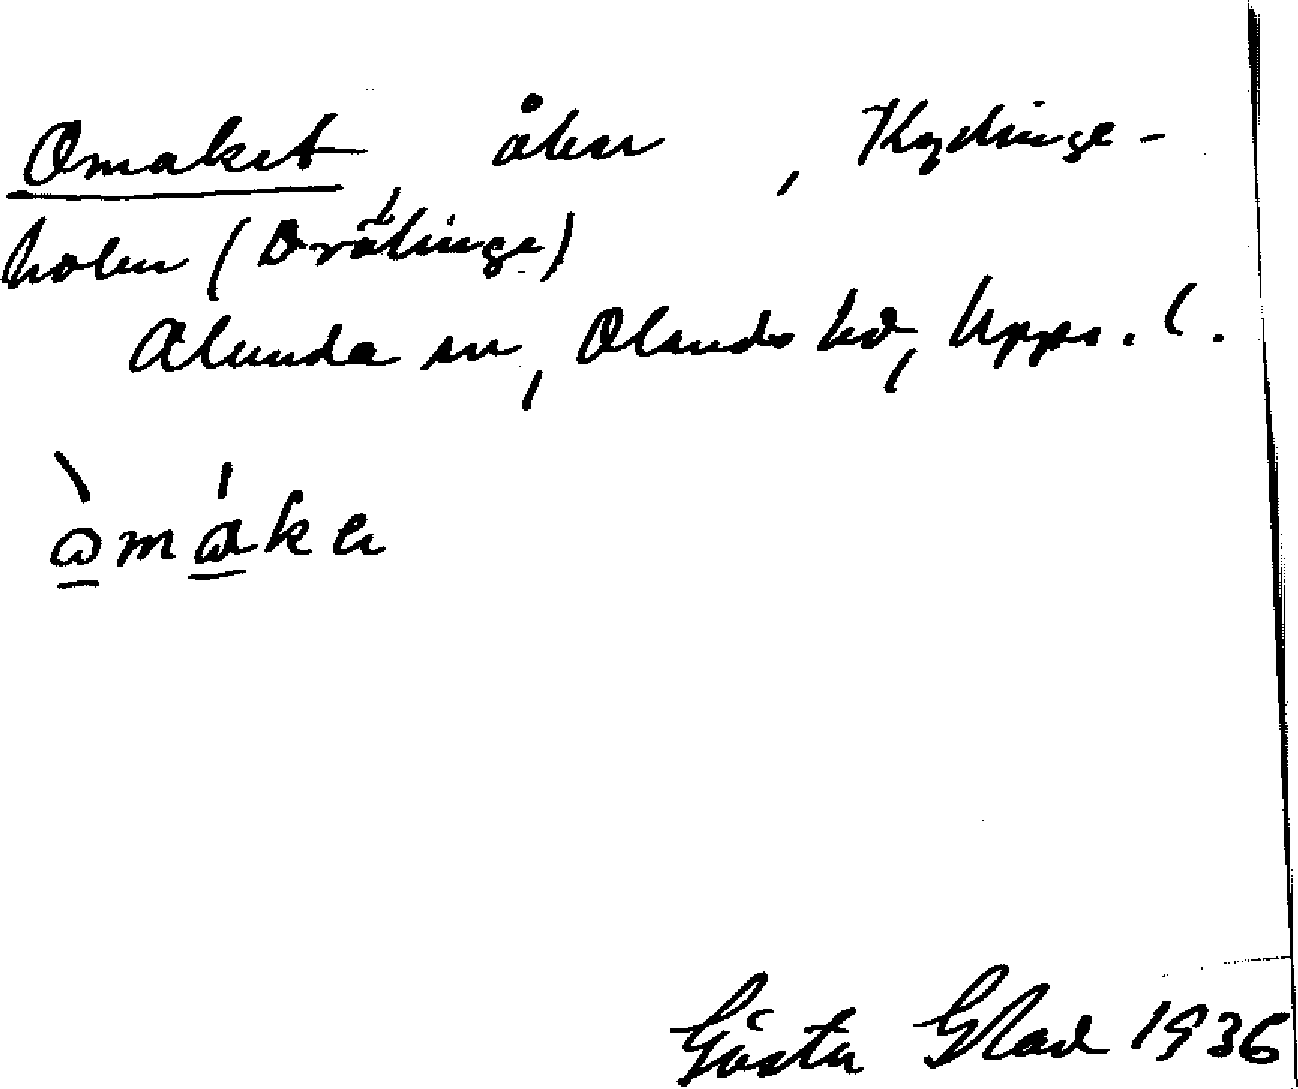 Omaket, åker, Kydinge-
holm (Drälinge)
Alunda sn, Olands hd, Upps. l.
Gösta Glad 1936